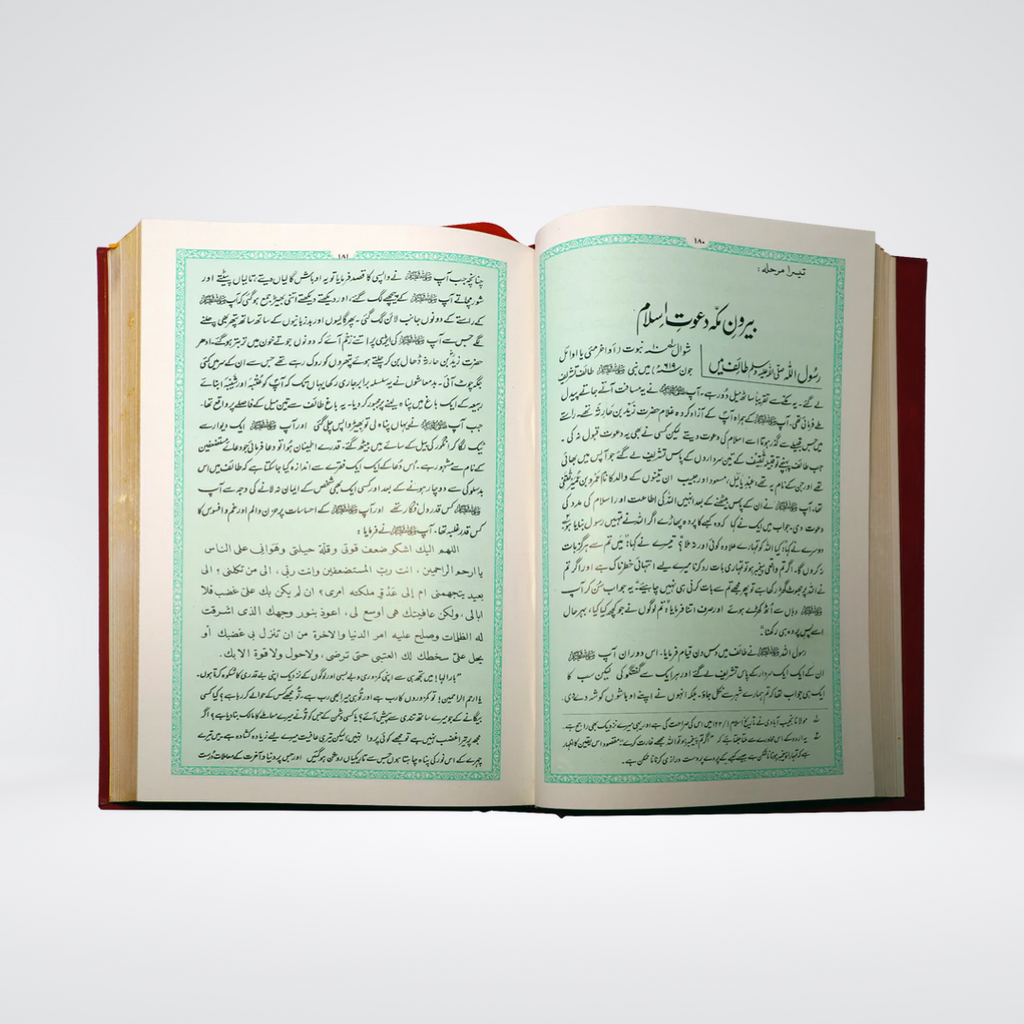 ۱۸۰
تیسرا مرحلہ:
بیرونِ مکّہ دعوتِ اسلام
رسول اللہ صلی اللہ علیہ وسلم طائف میں
شوال ۱۰ نبوت (اواخر مئی یا اوائل
جون ۶۱۹ء) میں نبی ﷺ طائف تشریف
لے گئے۔ یہ مکے سے تقریباً ساٹھ میل دور ہے۔ آپ ﷺ نے یہ مسافت آتے جاتے پیدل
طے فرمائی تھی۔ آپ ﷺ کے ہمراہ آپ کے آزاد کردہ غلام حضرت زید بن حارثہ تھے۔ راستے
میں جس قبیلے سے گذر ہوتا اسے اسلام کی دعوت دیتے لیکن کسی نے بھی یہ دعوت قبول نہ کی۔
جب طائف پہنچے تو قبیلہ ثقیف کے تین سرداروں کے پاس تشریف لے گئے جو آپس میں بھائی
تھے اور جن کے نام یہ تھے، عبد یالیل، مسعود اور حبیب ان تینوں کے والد کا نام عمرو بن عمیر ثقفی
تھا۔ آپ ﷺ نے ان کے پاس بیٹھنے کے بعد انہیں اللہ کی اطاعت اور اسلام کی مدد کی
دعوت دی۔ جواب میں ایک نے کہا کہ وہ کعبے کا پردہ پھاڑے اگر اللہ نے تمہیں رسول بنایا ہو۔
دوسرے نے کہا: کیا اللہ کو تمہارے علاوہ کوئی اور نہ ملا؟ تیسرے نے کہا: میں تم سے ہرگز بات
نہ کروں گا۔ اگر تم واقعی پیغمبر ہو تو تمہاری بات رد کرنا میرے لیے انتہائی خطرناک ہے اور اگر تم
نے اللہ پر جھوٹ گھڑ رکھا ہے تو پھر مجھے تم سے بات کرنی ہی نہیں چاہیئے۔ یہ جواب سن کر آپ
ﷺ وہاں سے اُٹھ کھڑے ہوئے اور صرف اتنا فرمایا: تم لوگوں نے جو کچھ کیا کیا، بہرحال
اسے پس پردہ ہی رکھنا۔
رسول اللہ ﷺ نے طائف میں دس دن قیام فرمایا۔ اس دوران آپ ﷺ
ان کے ایک ایک سردار کے پاس تشریف لے گئے اور ہر ایک سے گفتگو کی لیکن سب کا
ایک ہی جواب تھا کہ تم ہمارے شہر سے نکل جاؤ۔ بلکہ انہوں نے اپنے اوباشوں کو شہ دے دی۔
مولانا نجیب آبادی نے تاریخ اسلام ۱/۱۲۲ میں اس کی صراحت کی ہے اور یہی میرے نزدیک بھی راجح ہے۔
یہ اردو کے اس محاورے سے ملتا جلتا ہے کہ "اگر تم پیغمبر ہو تو اللہ مجھے غارت کرے" مقصود اس یقین کا اظہار
ہے کہ تمہارا پیغمبر ہونا ناممکن ہے جیسے کعبے کے پردے پر دست درازی کرنا ناممکن ہے۔
۱۸۱
چنانچہ جب آپ ﷺ نے واپسی کا قصد فرمایا تو یہ اوباش گالیاں دیتے، تالیاں پیٹتے اور
شور مچاتے آپ ﷺ کے پیچھے لگ گئے، اور دیکھتے دیکھتے اتنی بھیڑ جمع ہو گئی کہ آپ ﷺ
کے راستے کے دونوں جانب لائن لگ گئی۔ پھر گالیوں اور بدزبانیوں کے ساتھ ساتھ پتھر بھی چلنے
لگے جس سے آپ ﷺ کی ایڑی پر اتنے زخم آئے کہ دونوں جوتے خون میں تر بتر ہو گئے۔ ادھر
حضرت زید بن حارثہ ڈھال بن کر چلتے ہوئے پتھروں کو روک رہے تھے جس سے ان کے سر میں کئی
جگہ چوٹ آئی۔ بدمعاشوں نے یہ سلسلہ برابر جاری رکھا یہاں تک کہ آپ کو عتبہ اور شیبہ ابنائے
ربیعہ کے ایک باغ میں پناہ لینے پر مجبور کر دیا۔ یہ باغ طائف سے تین میل کے فاصلے پر واقع تھا۔
جب آپ ﷺ نے یہاں پناہ لی تو بھیڑ واپس چلی گئی اور آپ ﷺ ایک دیوار سے
ٹیک لگا کر انگور کی بیل کے سائے میں بیٹھ گئے۔ قدرے اطمینان ہوا تو دعا فرمائی جو دعائے مستضعفین
کے نام سے مشہور ہے۔ اس دعا کے ایک ایک فقرے سے اندازہ کیا جا سکتا ہے کہ طائف میں اس
بدسلوکی سے دوچار ہونے کے بعد اور کسی ایک بھی شخص کے ایمان نہ لانے کی وجہ سے آپ
ﷺ کس قدر دل فگار تھے اور آپ ﷺ کے احساسات پر حزن و الم اور غم و افسوس کا
کس قدر غلبہ تھا۔ آپ ﷺ نے فرمایا:
اللهم اليك اشكو ضعف قوتى وقلة حيلتى وهوانى على الناس
يا ارحم الراحمين، انت رب المستضعفين وانت ربى، الى من تكلنى؟ الى
بعيد يتجهمنى ام إلى عدو ملكته امرى؟ ان لم يكن بك على غضب فلا
ابالى، ولكن عافيتك هى اوسع لى، اعوذ بنور وجهك الذى اشرقت
له الظلمات وصلح عليه امر الدنيا والاخرة من ان تنزل بى غضبك أو
يحل على سخطك لك العتبى حتى ترضى، ولاحول ولا قوة الا بك.
"بارالہا! میں تجھ ہی سے اپنی کمزوری و بے بسی اور لوگوں کے نزدیک اپنی بے قدری کا شکوہ کرتا ہوں۔
یا ارحم الراحمین! تو کمزوروں کا رب ہے اور تو ہی میرا بھی رب ہے۔ تو مجھے کس کے حوالے کر رہا ہے؟ کیا کسی
بیگانے کے جو میرے ساتھ تندی سے پیش آئے؟ یا کسی دشمن کے جس کو تو نے میرے معاملے کا مالک بنا دیا ہے؟ اگر
مجھ پر تیرا غضب نہیں ہے تو مجھے کوئی پروا نہیں؛ لیکن تیری عافیت میرے لیے زیادہ کشادہ ہے۔ میں تیرے
چہرے کے اس نور کی پناہ چاہتا ہوں جس سے تاریکیاں روشن ہو گئیں اور جس پر دنیا و آخرت کے معاملات درست